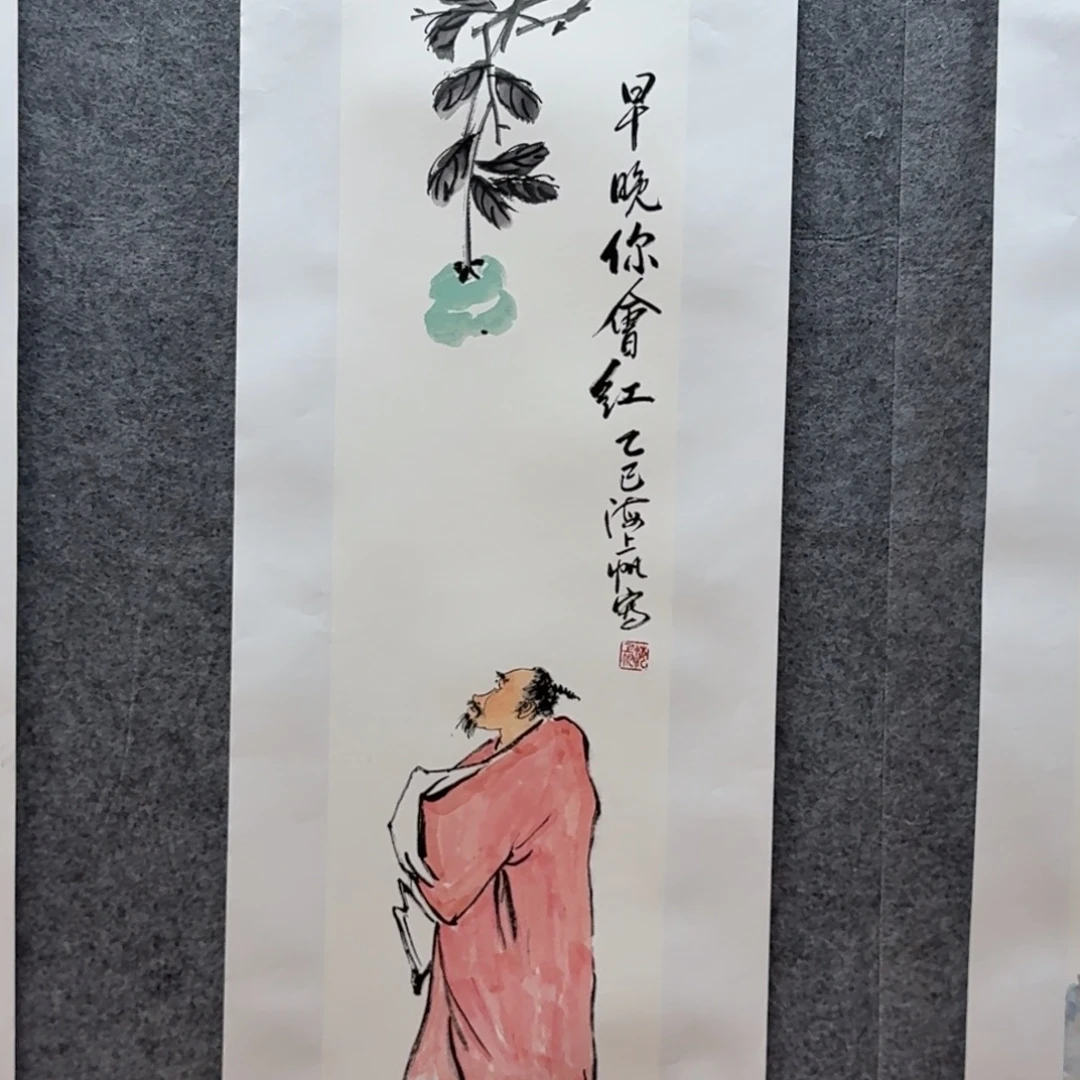 早晚你會红
乙巳海上帆寫